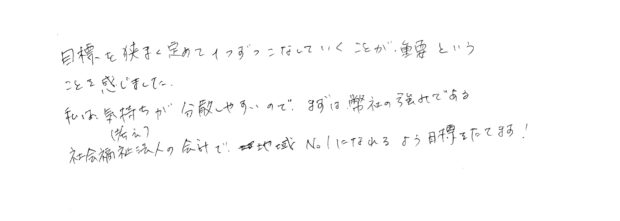 目標を狭まく定めて1つずつこなしていくことが、重要という
ことを感じました。
私は、気持ちが分散しやすいので、まずは弊社の強みである
(考え)
社会福祉法人の会計で、地域No.1になれるよう目標をたてます!